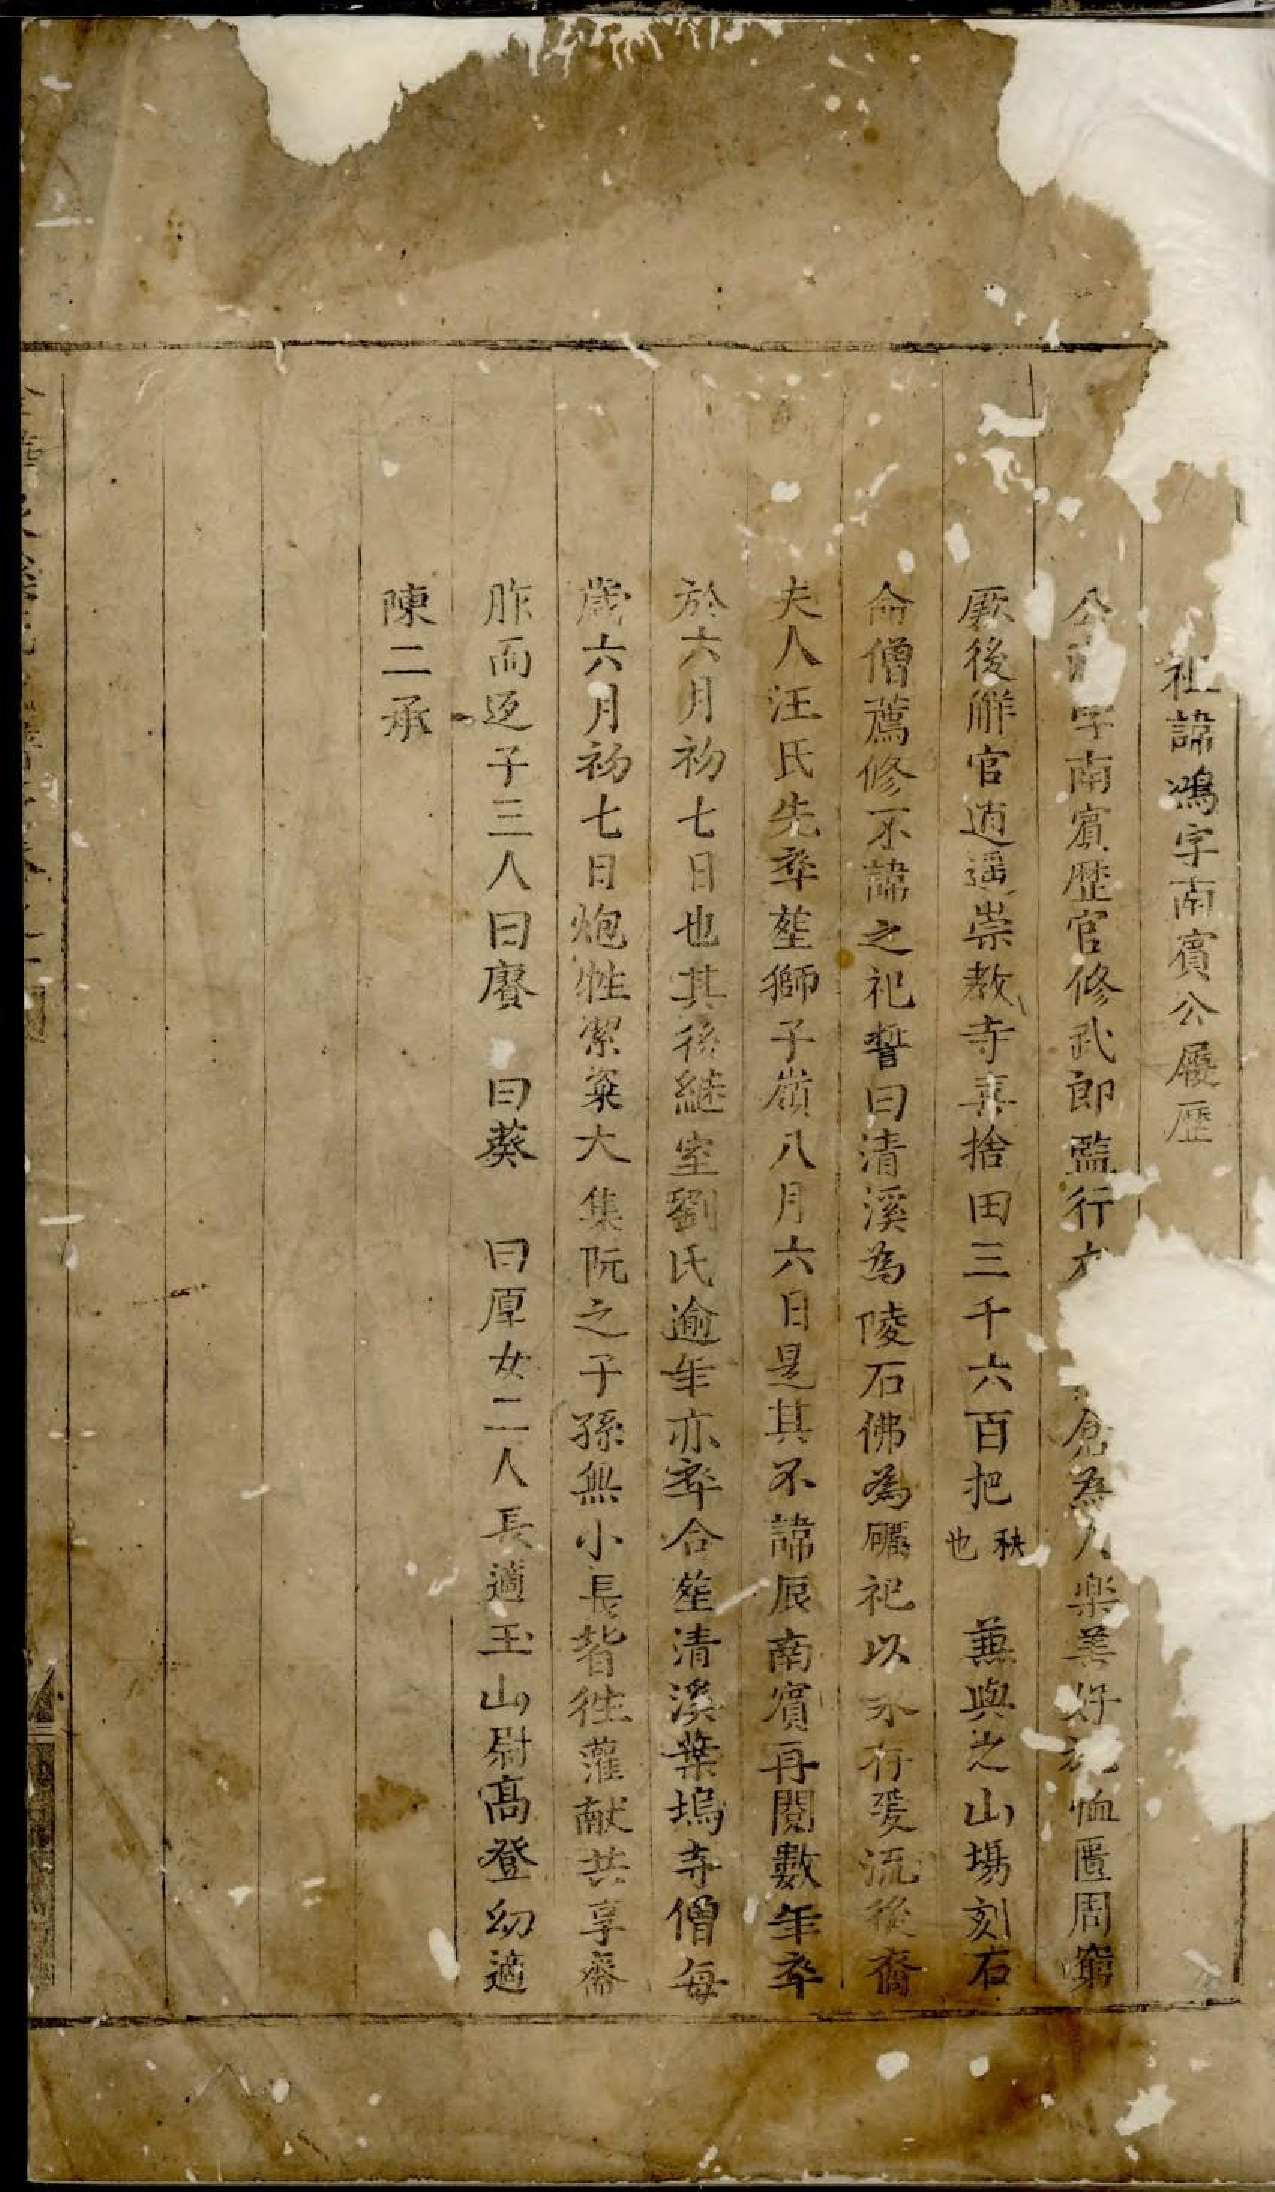 祖諱鴻字南賓公履歴
公 字南賓歴官修武郎監行 倉為人楽善好施恤匱周窮
厥後解官逍遥崇教寺喜捨田三千六百把秧也兼與之山塲刻石
命僧薦修不諱之祀誓曰清溪為陵石佛為礪祀以永存爰流後裔
夫人汪氏先卒塟獅子嶺八月六日是其不諱辰南賓再閲數年卒
於六月初七日也其後継室劉氏逾年亦卒合塟清溪葉塢寺僧每
歲六月初七日炮牲潔粢大集阮之子孫無小長皆徃灌献共享齋
胙而返子三人曰賡 曰葵 曰厚女二人長適玉山尉高登幼適
陳二承